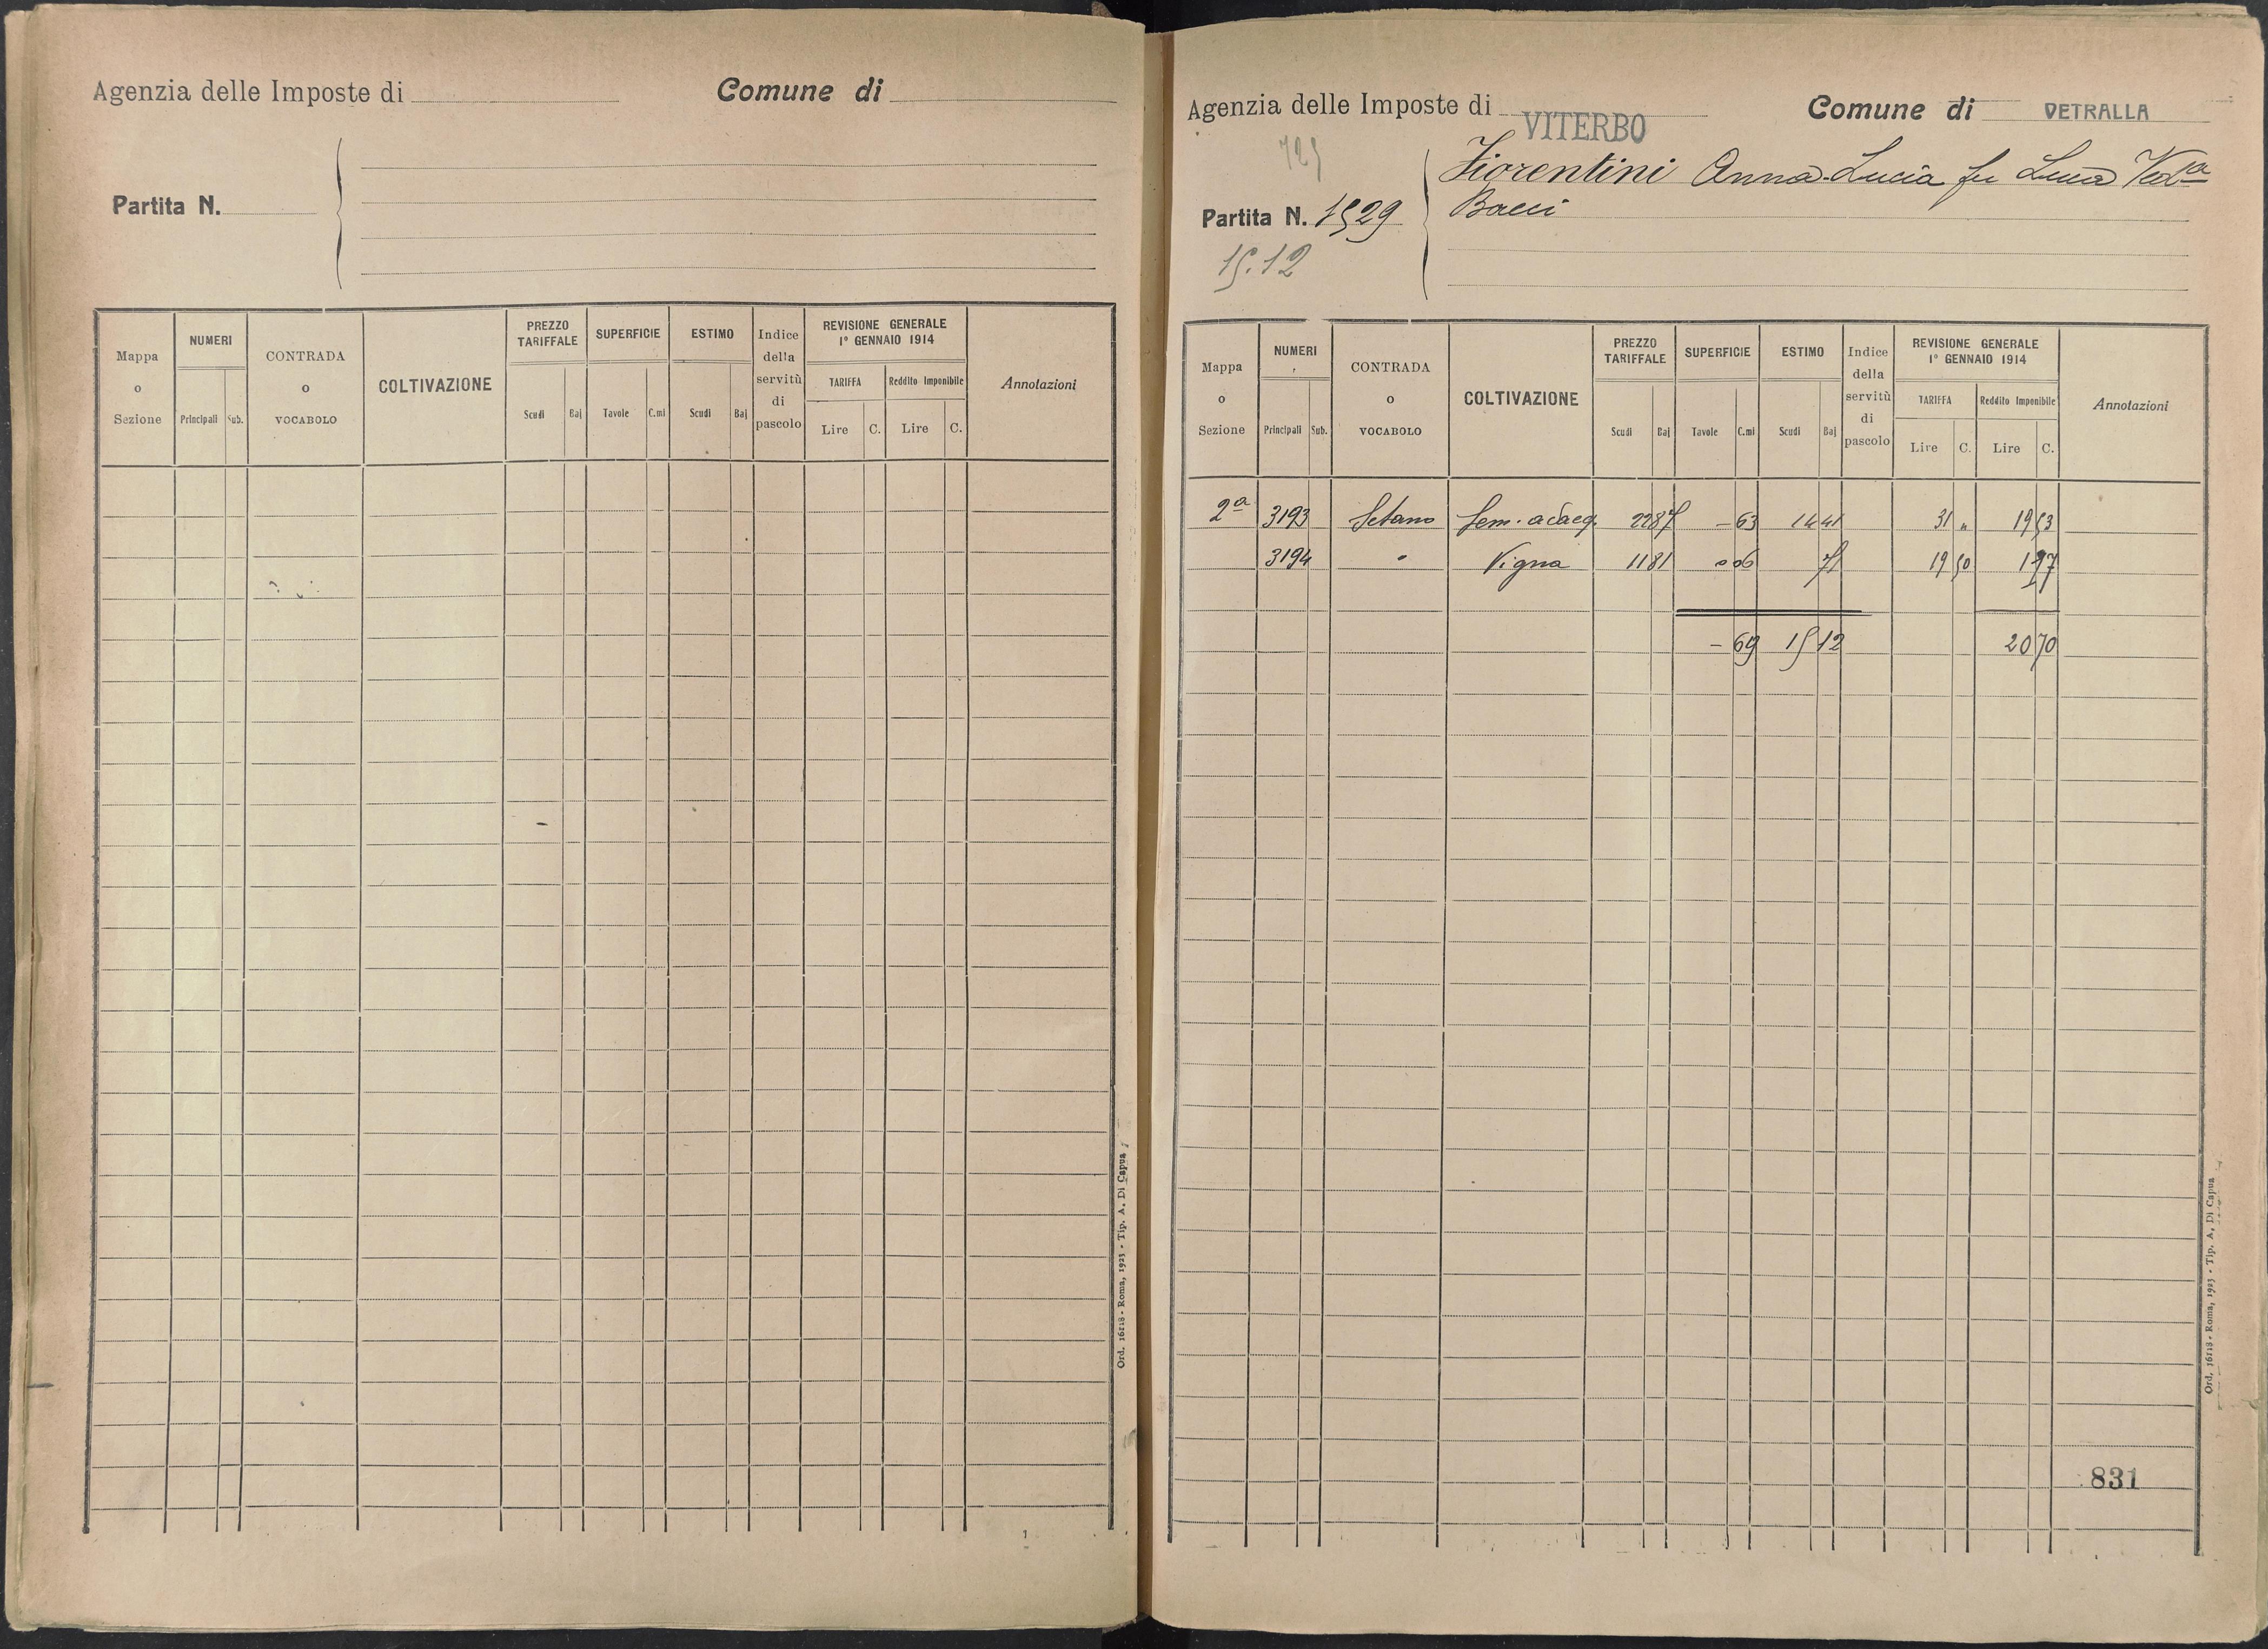 Agenzia delle Imposte di
Comune di
Partita N.
Mappa o Sezione
NUMERI
Principali
Sub.
CONTRADA o VOCABOLO
COLTIVAZIONE
PREZZO TARIFFALE
Scudi
Baj
SUPERFICIE
Tavole
C.mi
ESTIMO
Scudi
Baj
Indice della servitù di pascolo
REVISIONE GENERALE
1° GENNAIO 1914
TARIFFA
Lire
C.
Reddito Imponibile
Lire
C.
Annotazioni
Ord. 16118 - Roma, 1923 - Tip. A. Di Capua
Agenzia delle Imposte di VITERBO
Comune di VETRALLA
Fiorentini Anna-Lucia fu Luca Ved.a
Partita N. 1529
Bacci
15.12
Mappa o Sezione
NUMERI
Principali
Sub.
CONTRADA o VOCABOLO
COLTIVAZIONE
PREZZO TARIFFALE
Scudi
Baj
SUPERFICIE
Tavole
C.mi
ESTIMO
Scudi
Baj
Indice della servitù di pascolo
REVISIONE GENERALE
1° GENNAIO 1914
TARIFFA
Lire
C.
Reddito Imponibile
Lire
C.
Annotazioni
2a 3193 Setano Sem. adaeq. 22 87 - 63 14 41 31 " 19 53
3194 " Vigna 11 81 0 06 71 19 50 1 17
- 69 15 12 20 70
831
Ord. 16118 - Roma, 1923 - Tip. A. Di Capua